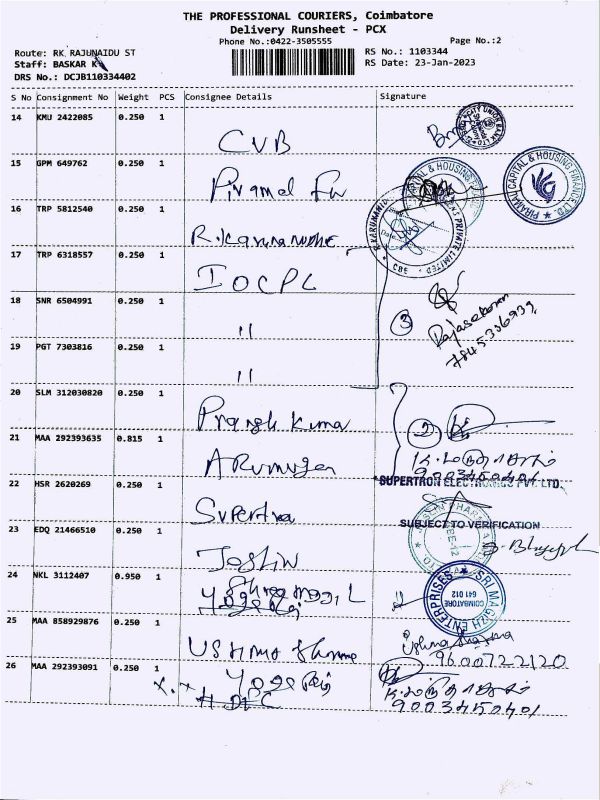 THE PROFESSIONAL COURIERS, Coimbatore
Delivery Runsheet - PCX
Phone No.:0422-3505555 Page No.:2
Route: RK RAJUNAIDU ST RS No.: 1103344
Staff: BASKAR K RS Date: 23-Jan-2023
DRS No.: DCJB110334402
S No Consignment No Weight PCS Consignee Details Signature
14 KMU 2422085 0.250 1
CVB
CITY UNION BANK LTD
15 GPM 649762 0.250 1
Piramal Fin
PIRAMAL CAPITAL & HOUSING FINANCE LTD
CAPITAL & HOUSING FINANCE
16 TRP 5812540 0.250 1
PRIVATE LIMITED
CBE
17 TRP 6318557 0.250 1
IOCPL
18 SNR 6504991 0.250 1
"
3
Rajasekaran
7845356939
19 PGT 7303816 0.250 1
"
20 SLM 312030820 0.250 1
Kumar
2
21 MAA 292393635 0.815 1
ARumugam
9003450401
22 HSR 2620269 0.250 1
SUPERTRON ELECTRONICS PVT. LTD.
Supertron
SUBJECT TO VERIFICATION
23 EDQ 21466510 0.250 1
Joslin
24 NKL 3112407 0.950 1
SRI MAGZH ENTERPRISES
COIMBATORE
641 012
25 MAA 858929876 0.250 1
Ushma Sharma
Ushma Sharma
9600722120
26 MAA 292393091 0.250 1
HDFC
9003450401